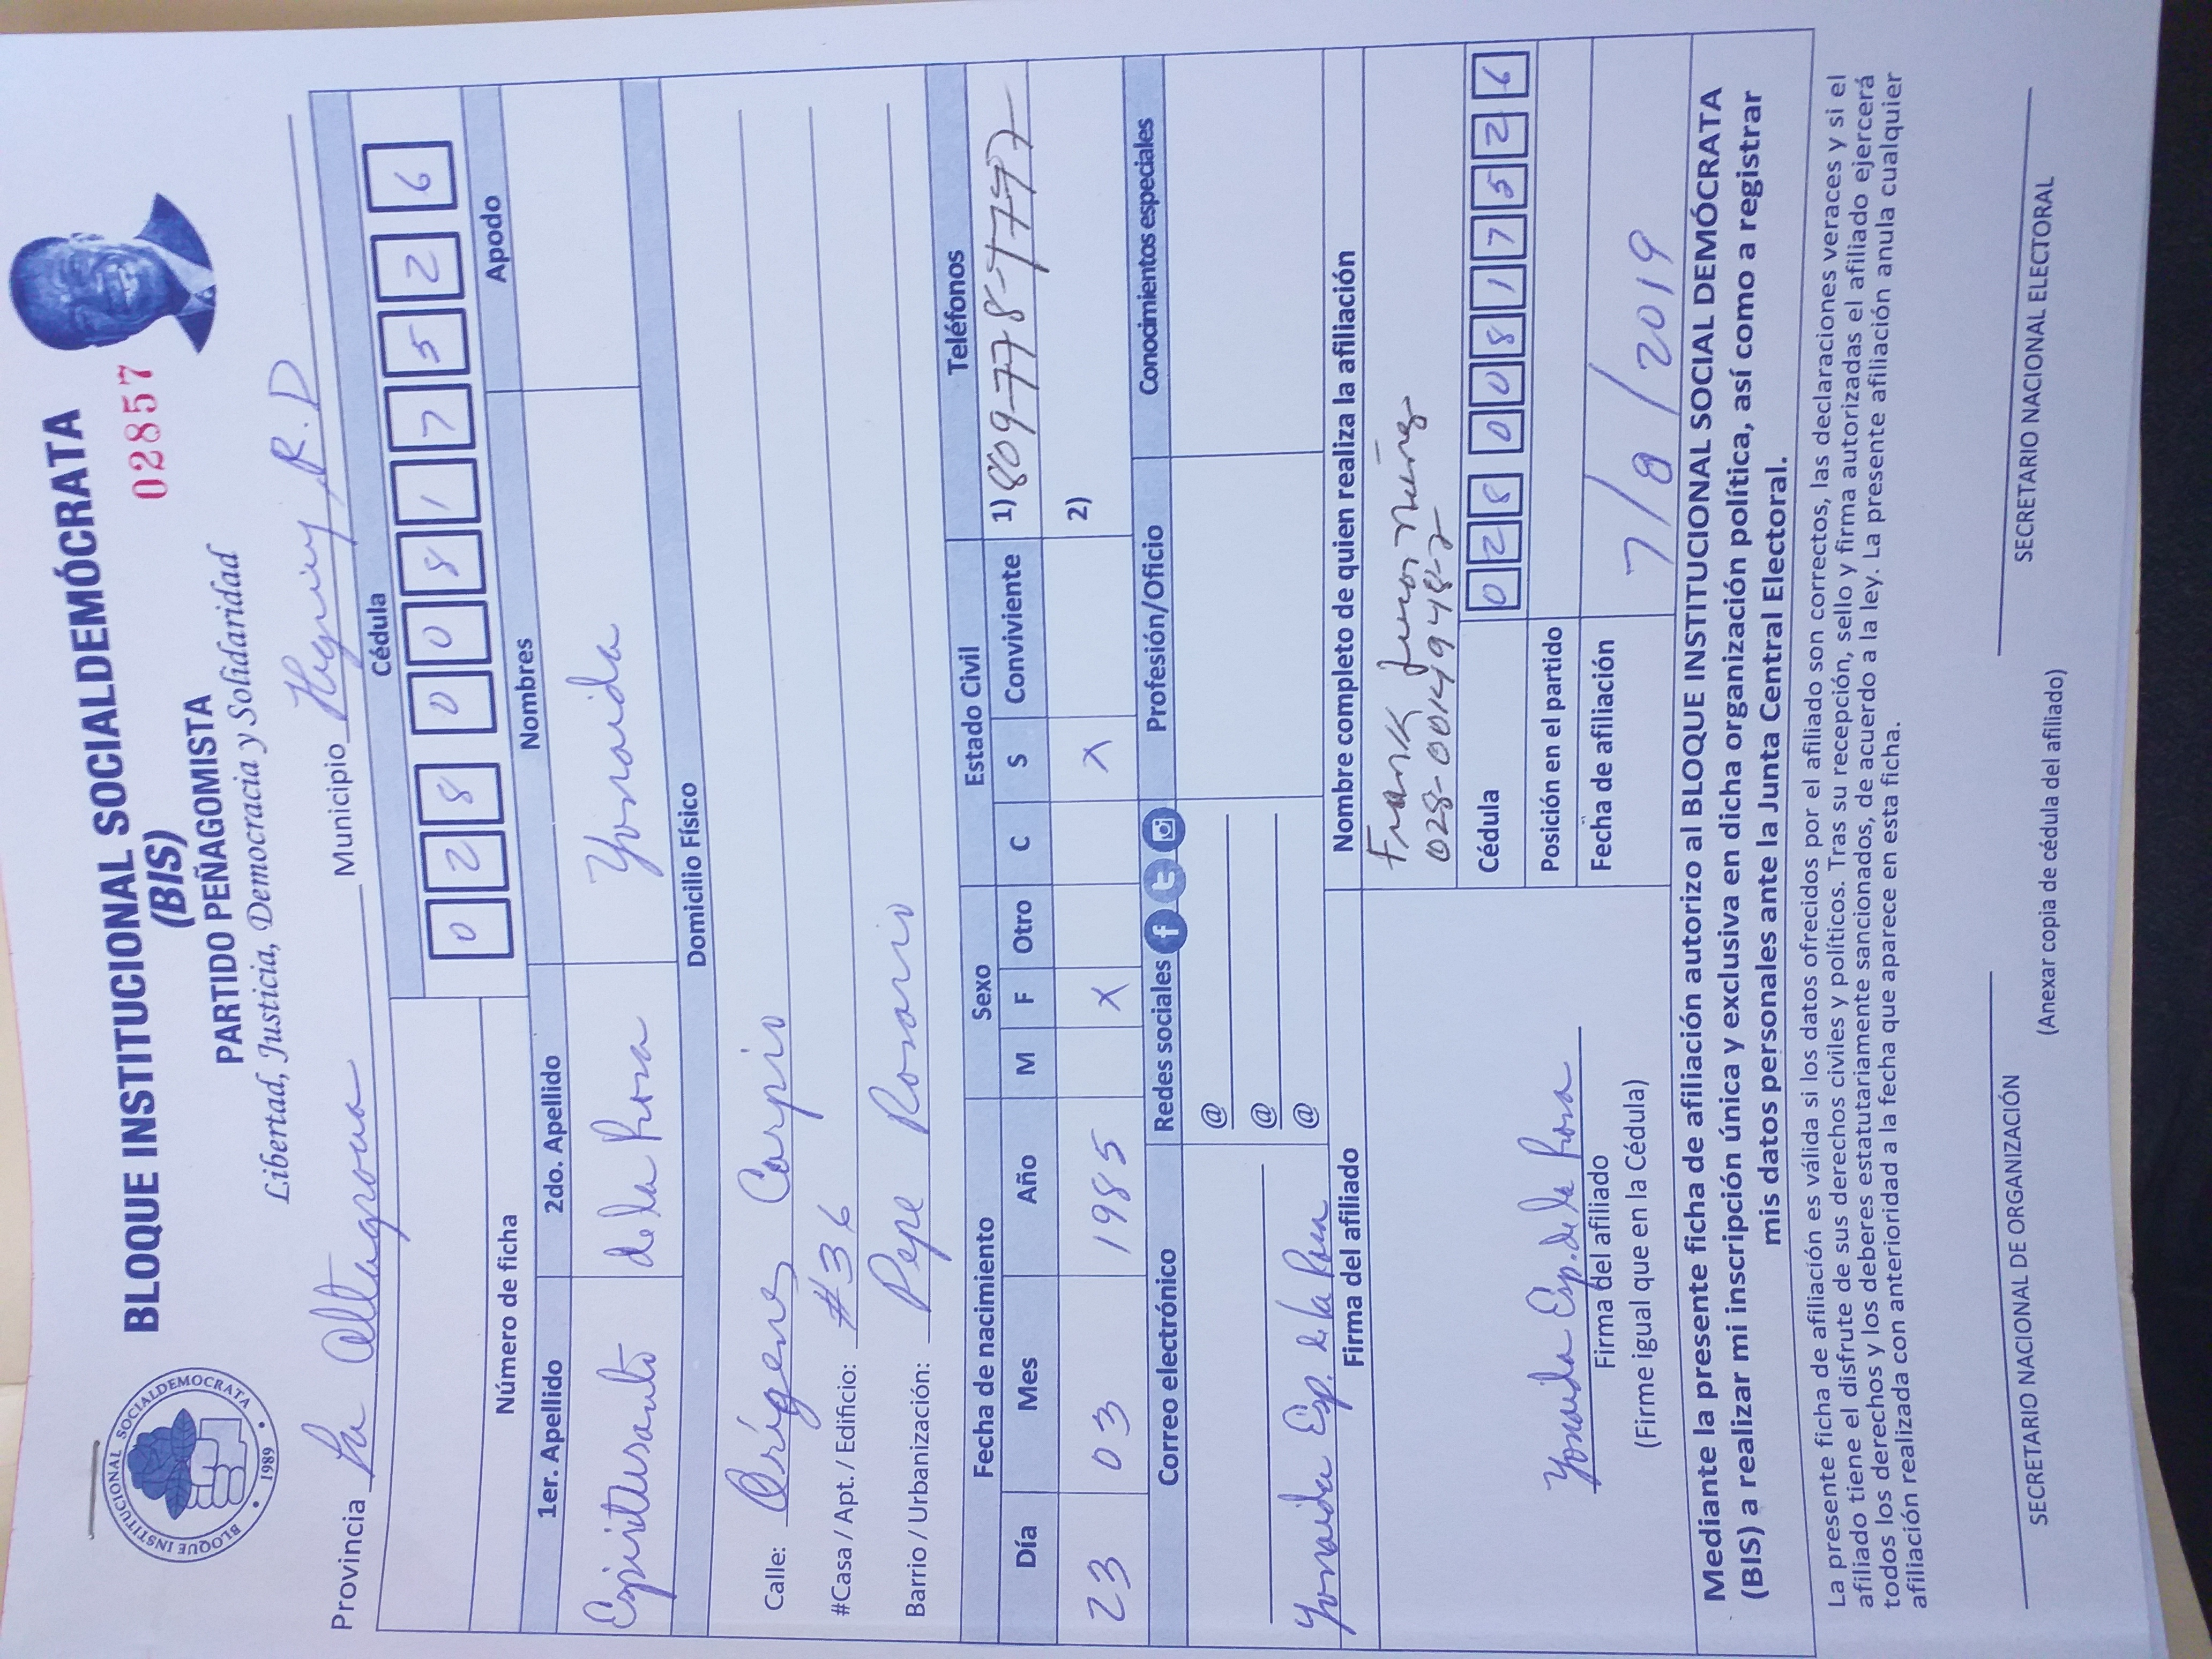 BLOQUE INSTITUCIONAL SOCIALDEMOCRATA
1989
BLOQUE INSTITUCIONAL SOCIALDEMÓCRATA
(BIS)
02857
PARTIDO PEÑAGOMISTA
Libertad, Justicia, Democracia y Solidaridad
Provincia La Altagracia Municipio Higuey R.D
Cédula
028 0081752 6
Número de ficha
1er. Apellido 2do. Apellido Nombres Apodo
Espiritusanto de la Rosa Yonaida
Domicilio Físico
Calle: Orígenes Carpio
#Casa / Apt. / Edificio: #36
Barrio / Urbanización: Pepe Rosario
Fecha de nacimiento Sexo Estado Civil Teléfonos
Día Mes Año M F Otro C S Conviviente 1) 809-778-7777
23 03 1985 X X 2)
Correo electrónico Redes sociales f t Profesión/Oficio Conocimientos especiales
@
@
@
Yonaida Esp. de la Rosa
Firma del afiliado Nombre completo de quien realiza la afiliación
Frank Junior Núñez
028-0014948-2
Cédula 028 0081752 6
Posición en el partido
Fecha de afiliación 7/8/2019
Yonaida Esp. de la Rosa
Firma del afiliado
(Firme igual que en la Cédula)
Mediante la presente ficha de afiliación autorizo al BLOQUE INSTITUCIONAL SOCIAL DEMÓCRATA
(BIS) a realizar mi inscripción única y exclusiva en dicha organización política, así como a registrar
mis datos personales ante la Junta Central Electoral.
La presente ficha de afiliación es válida si los datos ofrecidos por el afiliado son correctos, las declaraciones veraces y si el
afiliado tiene el disfrute de sus derechos civiles y políticos. Tras su recepción, sello y firma autorizadas el afiliado ejercerá
todos los derechos y los deberes estatutariamente sancionados, de acuerdo a la ley. La presente afiliación anula cualquier
afiliación realizada con anterioridad a la fecha que aparece en esta ficha.
SECRETARIO NACIONAL DE ORGANIZACIÓN SECRETARIO NACIONAL ELECTORAL
(Anexar copia de cédula del afiliado)